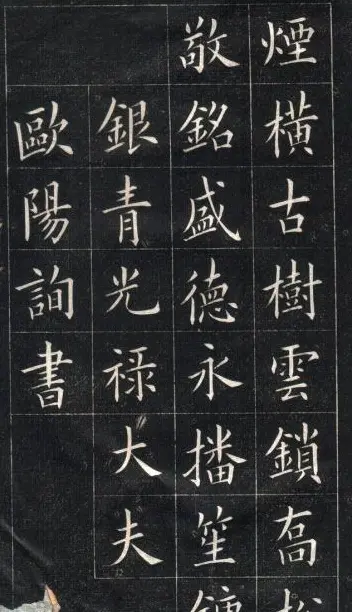 煙橫古樹雲鎖髙
敬銘盛德永播笙
銀青光祿大夫
歐陽詢書